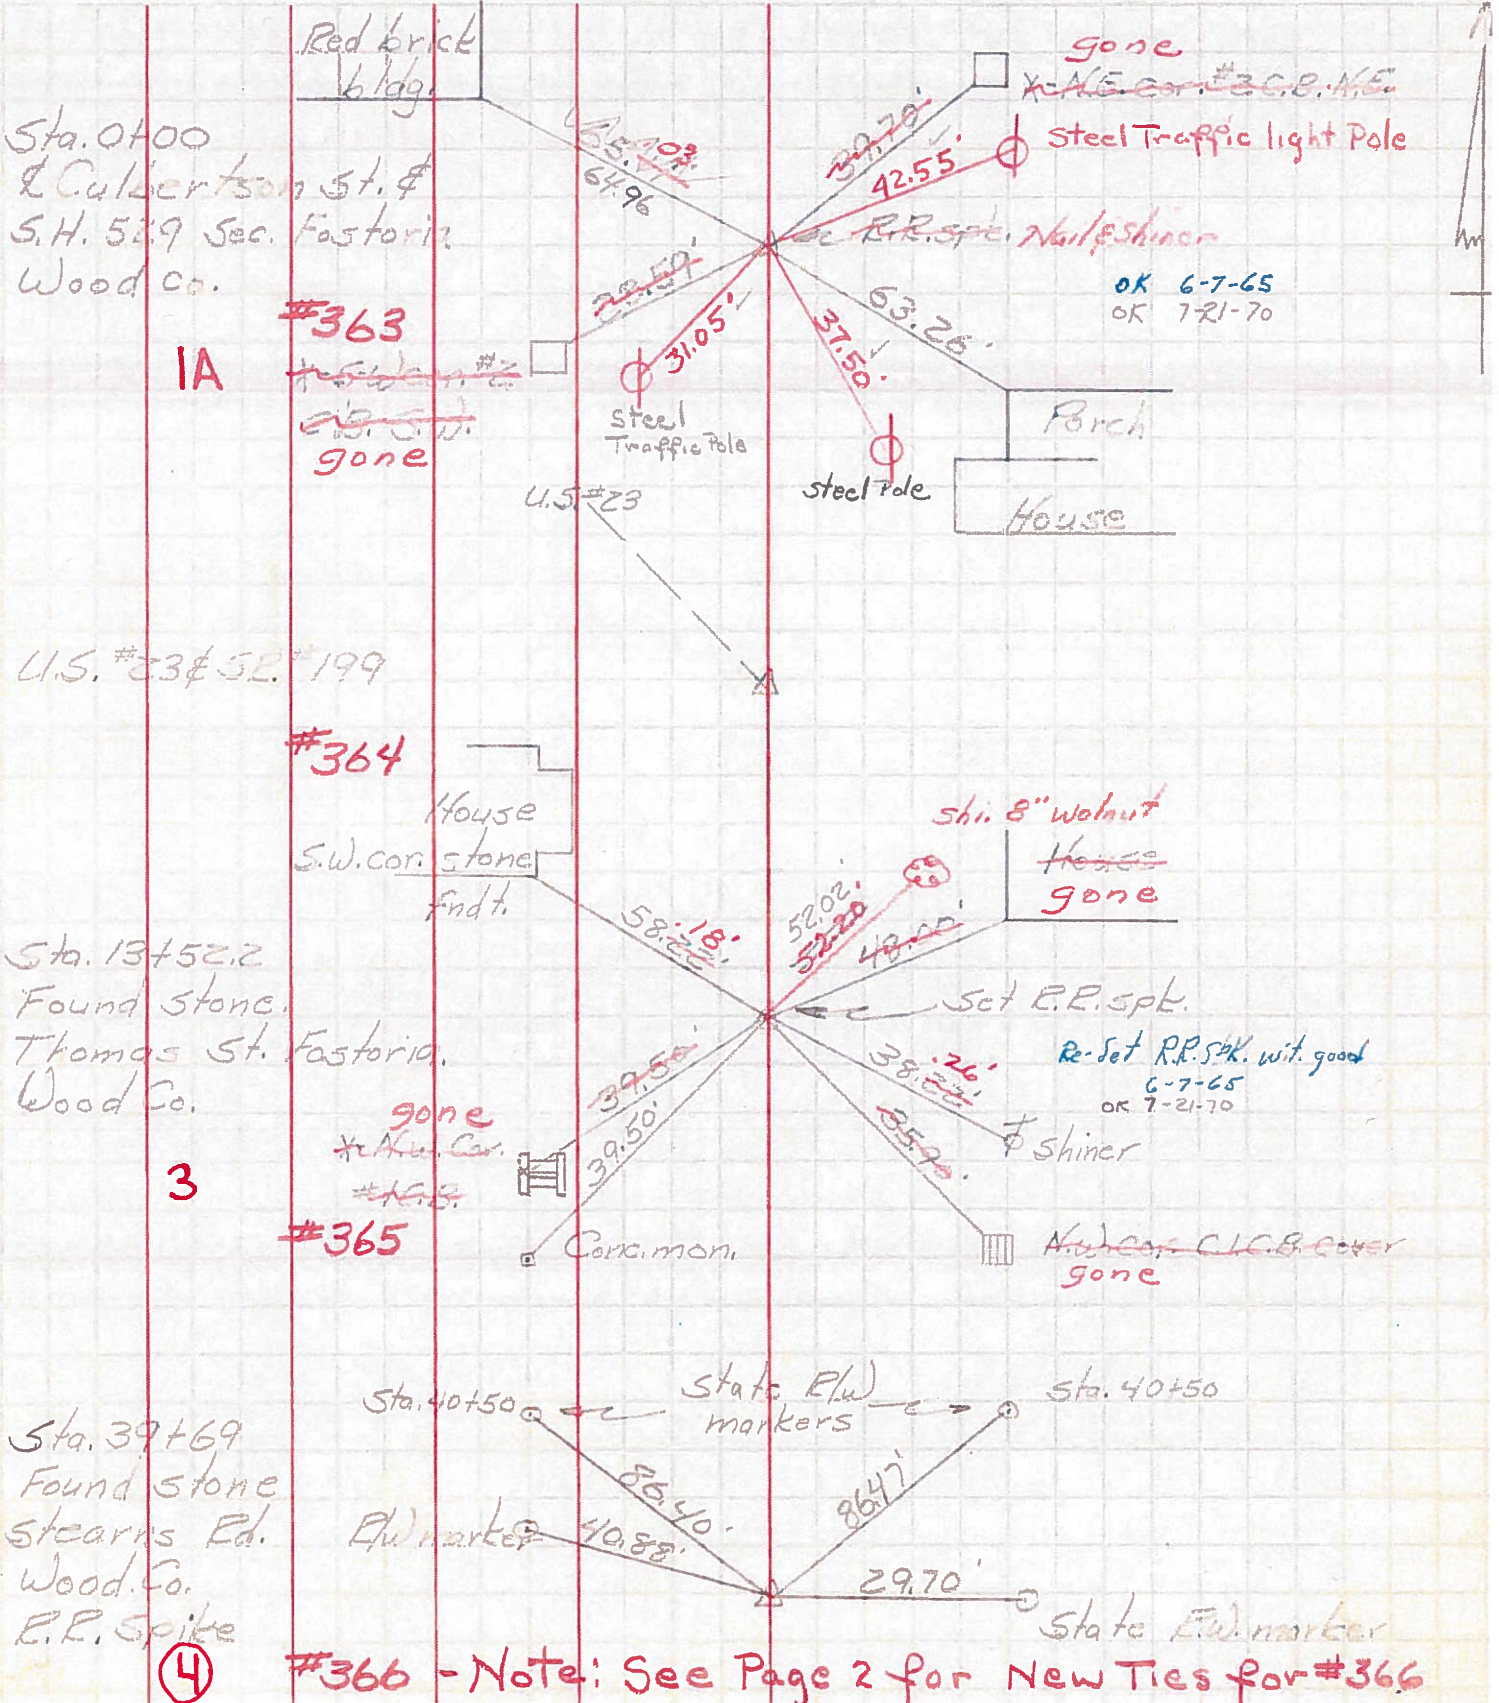 Red brick
bldg.
gone
X-N.E. cor. #2 C.B. N.E.
Steel Traffic light Pole
Sta. 0+00
₵ Culbertson St. &
S.H. 529 Sec. Fostoria
Wood Co.
03
64.96
39.70'
42.55'
R.R. spk. Nail & Shiner
OK 6-7-65
OK 7-21-70
#363
1A
gone
31.05'
37.50'
63.26'
Steel
Traffic Pole
Steel Pole
Porch
House
U.S. #23
U.S. #23 & S.R. #199
#364
House
S.W. cor. stone
fndt.
shi. 8" walnut
House
gone
58.22 .18'
52.02'
52.20
48.00'
Sta. 13+52.2
Found stone.
Thomas St. Fostoria.
Wood Co.
Set R.R. spk.
Re-Set R.R. Spk. wit. good
6-7-65
OK 7-21-70
39.50'
39.50'
38.22 .26'
35.90'
gone
X-N.W. Cor.
#1 C.B.
3
Shiner
#365
Conc. mon.
N.W. cor. C.I.C.B. cover
gone
Sta. 40+50
State R/W
markers
Sta. 40+50
Sta. 39+69
Found stone
Stearns Rd.
Wood. Co.
R.R. Spike
R/W marker
86.40'
40.88'
86.47'
29.70'
State R.W. marker
4
#366 - Note: See Page 2 for New Ties for #366